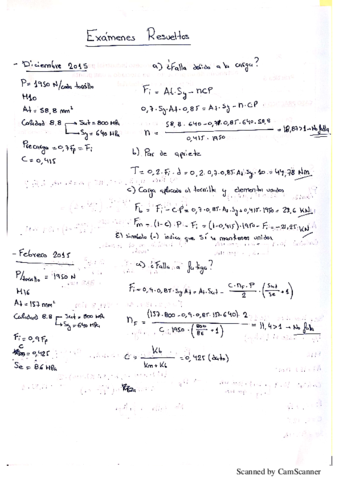 Exámenes Resueltos
- Diciembre 2015
P = 1950 N/cada tornillo
M10
At = 58,8 mm²
Calidad 8.8 → Sut = 800 MPa
→ Sy = 640 MPa
Precarga = 0,7Fp = Fi
C = 0,415
a) ¿Falla debido a la carga?
Fi = At·Sy - nCP
0,7·Sy·At·0,85 = At·Sy - n·C·P
n =
0,415 · 1950
b) Par de apriete
T = 0,2·Fi·d = 0,2·0,7·0,85·At·Sy·10 = 44,78 Nm
c) Carga aplicada al tornillo y elementos unidos
El símbolo (-) indica que Sí se mantienen unidos
- Febrero 2015
= 1950 N
M16
At = 157 mm²
Calidad 8.8 → Sut = 800 MPa
→ Sy = 640 MPa
Fi = 0,9Fp
C = 0,425
Se = 86 MPa
a) ¿Falla a fatiga?
Fi = 0,9·0,85·Sy·At = At·Sut - C·nf·P / 2 · (Sut/Se + 1)
nf = (157·800 - 0,9·0,85·157·640)·2 / C·1950·(800/86 + 1) = 11,4 > 1 → No falla
C = Kb / Km + Kb = 0,425 (dato)
Scanned by CamScanner